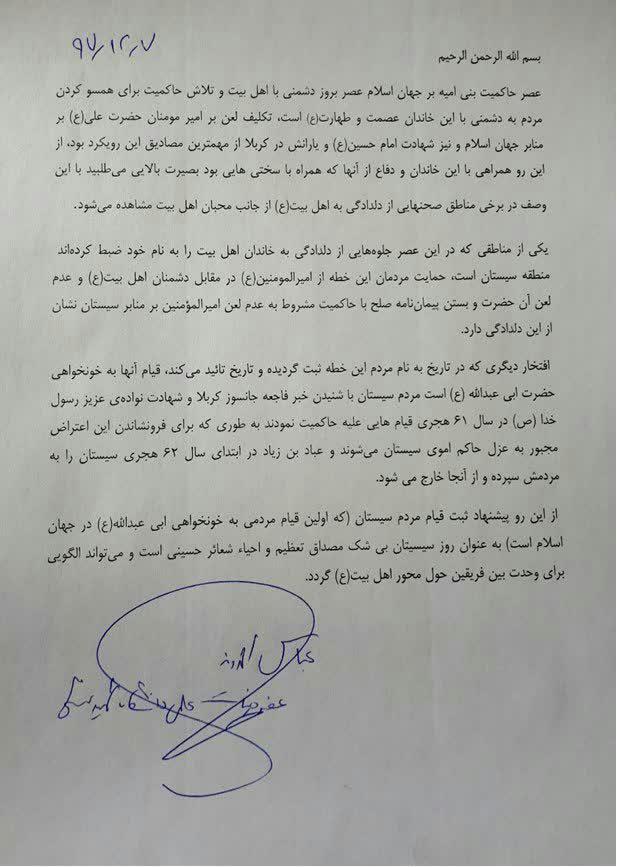 ۹۷/۱۲/۷
بسم الله الرحمن الرحیم
عصر حاکمیت بنی امیه بر جهان اسلام عصر بروز دشمنی با اهل بیت و تلاش حاکمیت برای همسو کردن
مردم به دشمنی با این خاندان عصمت و طهارت(ع) است، تکلیف لعن بر امیر مومنان حضرت علی(ع) بر
منابر جهان اسلام و نیز شهادت امام حسین(ع) و یارانش در کربلا از مهمترین مصادیق این رویکرد بود، از
این رو همراهی با این خاندان و دفاع از آنها که همراه با سختی هایی بود بصیرت بالایی می‌طلبید با این
وصف در برخی مناطق صحنهایی از دلدادگی به اهل بیت(ع) از جانب محبان اهل بیت مشاهده می‌شود.
یکی از مناطقی که در این عصر جلوه‌هایی از دلدادگی به خاندان اهل بیت را به نام خود ضبط کرده‌اند
منطقه سیستان است، حمایت مردمان این خطه از امیرالمومنین(ع) در مقابل دشمنان اهل بیت(ع) و عدم
لعن آن حضرت و بستن پیمان‌نامه صلح با حاکمیت مشروط به عدم لعن امیرالمؤمنین بر منابر سیستان نشان
از این دلدادگی دارد.
افتخار دیگری که در تاریخ به نام مردم این خطه ثبت گردیده و تاریخ تائید می‌کند، قیام آنها به خونخواهی
حضرت ابی عبدالله (ع) است مردم سیستان با شنیدن خبر فاجعه جانسوز کربلا و شهادت نواده‌ی عزیز رسول
خدا (ص) در سال ۶۱ هجری قیام هایی علیه حاکمیت نمودند به طوری که برای فرونشاندن این اعتراض
مجبور به عزل حاکم اموی سیستان می‌شوند و عباد بن زیاد در ابتدای سال ۶۲ هجری سیستان را به
مردمش سپرده و از آنجا خارج می شود.
از این رو پیشنهاد ثبت قیام مردم سیستان (که اولین قیام مردمی به خونخواهی ابی عبدالله(ع) در جهان
اسلام است) به عنوان روز سیسیتان بی شک مصداق تعظیم و احیاء شعائر حسینی است و می‌تواند الگویی
برای وحدت بین فریقین حول محور اهل بیت(ع) گردد.
عباس
عضو هیئت علمی دانشگاه